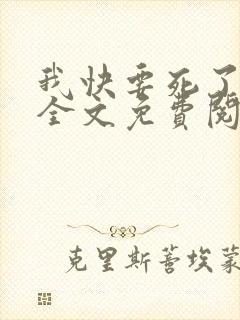 我快要死了
全文免費閱
克里斯蒂埃蒙